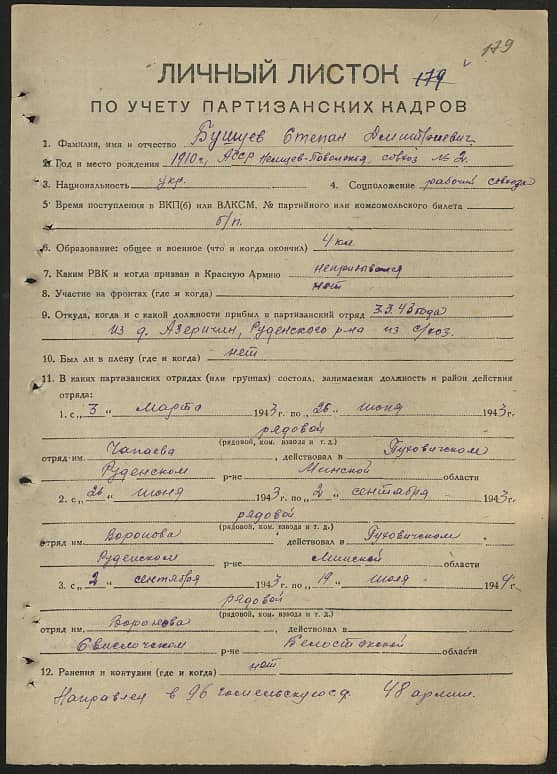 179
ЛИЧНЫЙ ЛИСТОК 179
ПО УЧЕТУ ПАРТИЗАНСКИХ КАДРОВ
1. Фамилия, имя и отчество Бушуев Степан Дмитриевич
2. Год и место рождения 1910 г., АССР Немцев-Поволжья, совхоз № 2.
3. Национальность укр. 4. Соцположение рабочий совхоза
5. Время поступления в ВКП(б) или ВЛКСМ. № партийного или комсомольского билета
б/п.
6. Образование: общее и военное (что и когда окончил) 4 кл.
7. Каким РВК и когда призван в Красную Армию непризывался
8. Участие на фронтах (где и когда) нет
9. Откуда, когда и с какой должности прибыл в партизанский отряд 3.3.43 года
из д. Азеричин, Руденского р-на из с/хоз.
10. Был ли в плену (где и когда) нет
11. В каких партизанских отрядах (или группах) состоял, занимаемая должность и район действия
отряда:
1. с „3“ марта 1943 г. по „26“ июня 1943 г.
рядовой
(рядовой, ком. взвода и т. д.)
отряд им. Чапаева, действовал в Пуховичском
Руденском р-не Минской области
2. с „26“ июня 1943 г. по „2“ сентября 1943 г.
рядовой
(рядовой, ком. взвода и т. д.)
отряд им. Воронова действовал в Пуховичском
Руденском р-не Минской области
3. с „2“ сентября 1943 г. по „19“ июля 1944 г.
рядовой
(рядовой, ком. взвода и т. д.)
отряд им. Воронова, действовал в
Свислочском р-не Белостокской области
12. Ранения и контузии (где и когда) нет
Направлен в 96 гомельскую с.д. 48 армии.